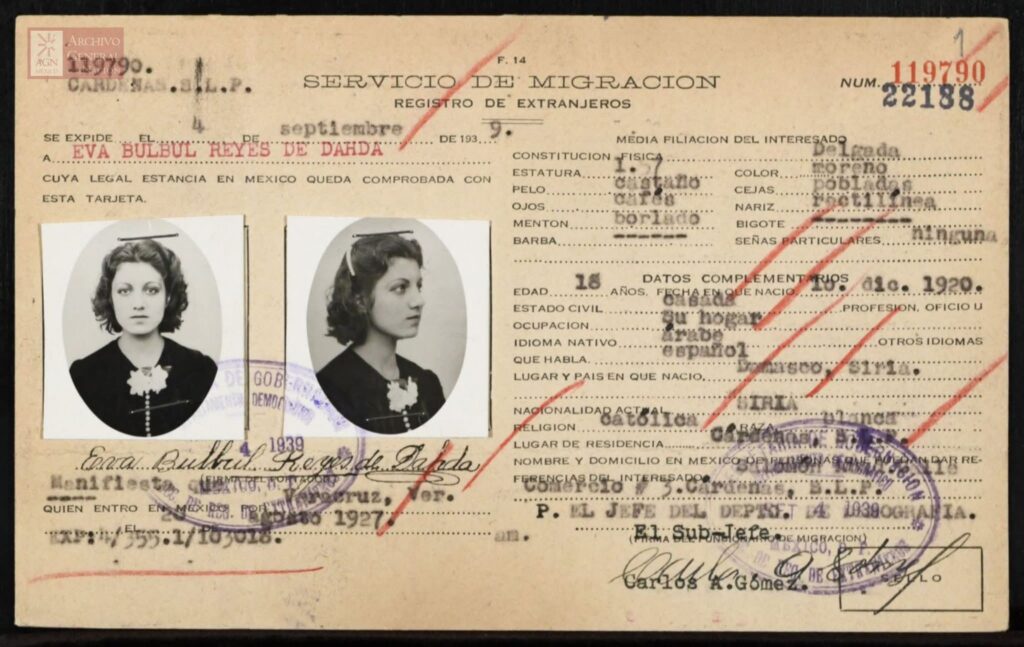 ARCHIVO
GENERAL
AGN
MÉXICO
119790.
CARDENAS.S.L.P.
F. 14
SERVICIO DE MIGRACION
REGISTRO DE EXTRANJEROS
1
NUM. 119790
22188
SE EXPIDE EL 4 DE septiembre DE 193 9.
A EVA BULBUL REYES DE DAHDA
CUYA LEGAL ESTANCIA EN MEXICO QUEDA COMPROBADA CON
ESTA TARJETA.
Eva Bulbul Reyes de Dahda
(FIRMA DEL PORTADOR)
Manifiesta que
Veracruz, Ver.
QUIEN ENTRO EN MEXICO POR
EL DE agosto 1927.
EXP:4/355.1/103018. am.
MEDIA FILIACION DEL INTERESADO
CONSTITUCION FISICA Delgada
ESTATURA 1.5 COLOR moreno
PELO castaño CEJAS pobladas
OJOS cafés NARIZ rectilínea
MENTON borlado BIGOTE --------
BARBA ------ SEÑAS PARTICULARES ninguna
DATOS COMPLEMENTARIOS
EDAD 18 AÑOS, FECHA EN QUE NACIO 1o. dic. 1920.
ESTADO CIVIL casada PROFESION, OFICIO U
OCUPACION Su hogar
IDIOMA NATIVO árabe OTROS IDIOMAS
QUE HABLA español
LUGAR Y PAIS EN QUE NACIO Damasco, Siria.
NACIONALIDAD ACTUAL SIRIA
RELIGION católica RAZA blanca
LUGAR DE RESIDENCIA Cárdenas, S.L.P.
NOMBRE Y DOMICILIO EN MEXICO DE PERSONAS QUE PUEDAN DAR RE-
FERENCIAS DEL INTERESADO
Comercio # 3.Cárdenas, S.L.P.
P. EL JEFE DEL DEPTO. DE DEMOGRAFIA.
El Sub-Jefe.
(FIRMA DEL FUNCIONARIO DE MIGRACION)
Carlos A.Gómez.
SELLO
4 1939
4 1939
MEXICO, D. F.